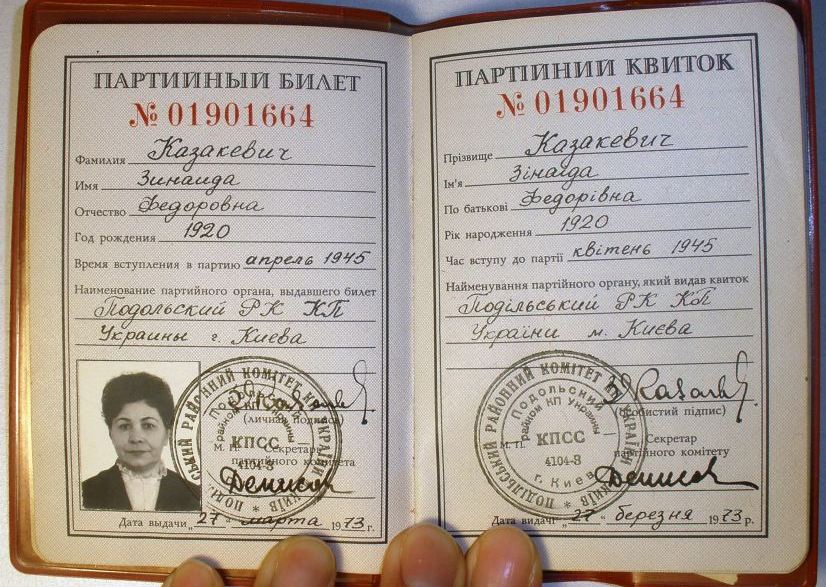 ПАРТИЙНЫЙ БИЛЕТ
№ 01901664
Фамилия Казакевич
Имя Зинаида
Отчество Федоровна
Год рождения 1920
Время вступления в партию апрель 1945
Наименование партийного органа, выдавшего билет
Подольский РК КП
Украины г. Киева
(личная подпись)
М. П. Секретарь
партийного комитета
Дата выдачи „27“ марта 1973 г.
ПАРТІЙНИЙ КВИТОК
№ 01901664
Прізвище Казакевич
Ім'я Зінаїда
По батькові Федорівна
Рік народження 1920
Час вступу до партії квітень 1945
Найменування партійного органу, який видав квиток
Подільський РК КП
України м. Києва
(особистий підпис)
М. П. Секретар
партійного комітету
Дата видачі „27“ березня 1973 р.
ПОДІЛЬСЬКИЙ РАЙОННИЙ КОМІТЕТ КП УКРАЇНИ м. КИЇВ
Подольский райком КП Украины
КПСС
4104-3
г. Киев